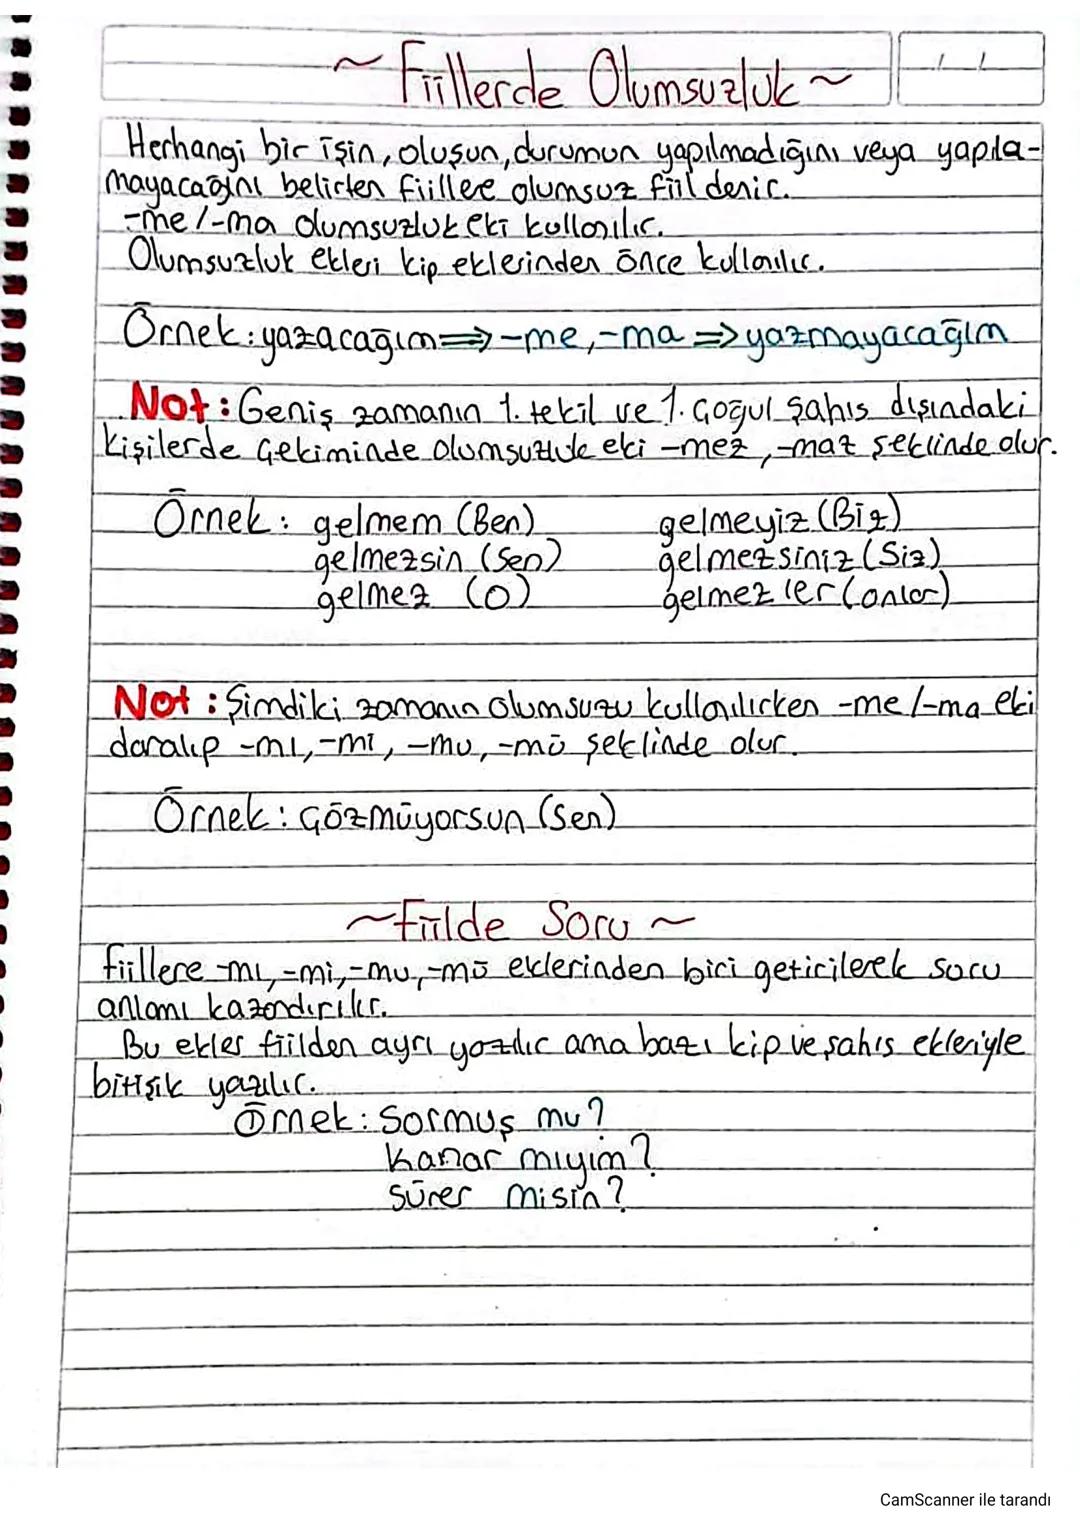 ~ Fiillerde Olumsuzluk ~
Herhangi bir işin, oluşun, durumun yapılmadığını veya yapıla-
mayacağını belirten fiillere olumsuz fiil denir.
-me /-ma olumsuzluk eki kullanılır.
Olumsuzluk ekleri kip eklerinden önce kullanılır.
Örnek: yazacağım ⇒ -me, -ma ⇒ yazmayacağım
Not: Geniş zamanın 1. tekil ve 1. çoğul şahıs dışındaki
kişilerde çekiminde olumsuzluk eki -mez, -maz şeklinde olur.
Örnek: gelmem (Ben) gelmeyiz (Biz)
gelmezsin (Sen) gelmezsiniz (Siz)
gelmez (O) gelmezler (onlar)
Not: Şimdiki zamanın olumsuzu kullanılırken -me /-ma eki
daralıp -mı, -mi, -mu, -mü şeklinde olur.
Örnek: Çözmüyorsun (Sen)
~ Fiilde Soru ~
fiillere -mı, -mi, -mu, -mü eklerinden biri getirilerek soru
anlamı kazandırılır.
Bu ekler fiilden ayrı yazılır ama bazı kip ve şahıs ekleriyle
bitişik yazılır.
Örnek: Sormuş mu?
Kanar mıyım?
Sürer misin?
CamScanner ile tarandı